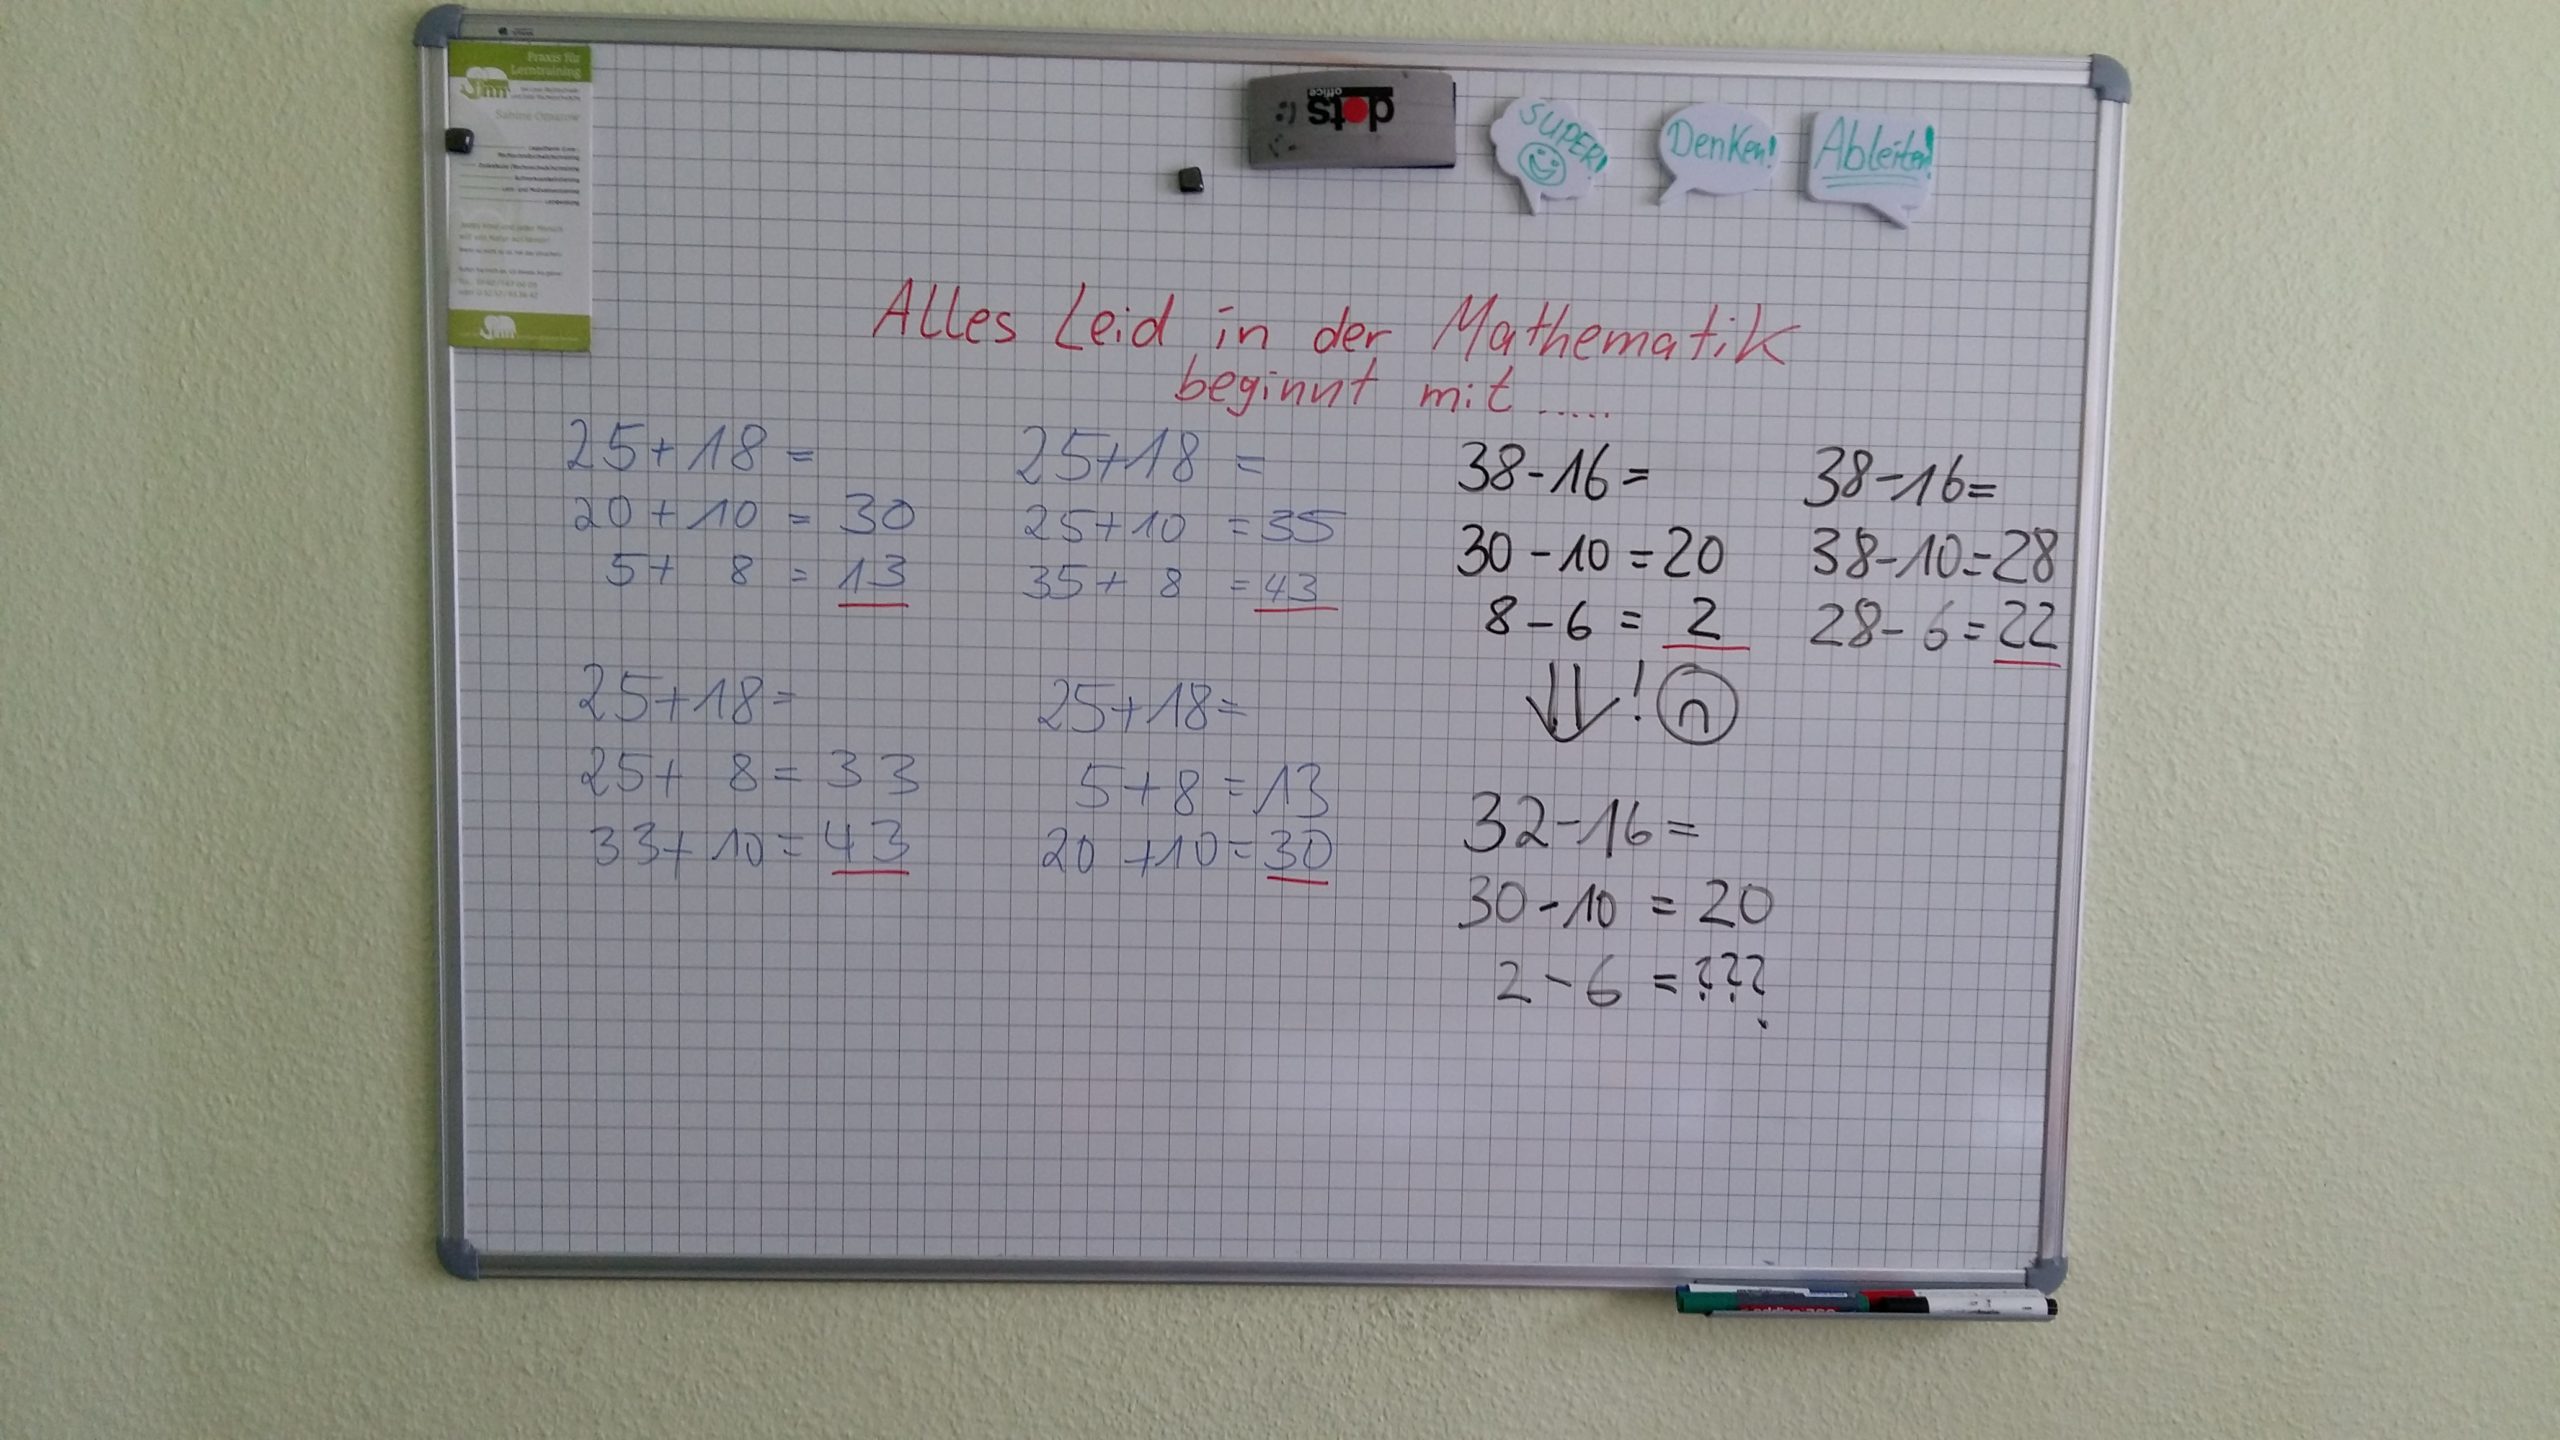 Praxis für
Lerntraining
dots
office
SUPER!
Denken!
Ableiten!
Alles Leid in der Mathematik
beginnt mit .....
25+18=
20+10=30
5+ 8=13
25+18=
25+10=35
35+ 8=43
38-16=
30-10=20
8-6=2
38-16=
38-10=28
28-6=22
!
25+18=
25+ 8=33
33+10=43
25+18=
5+8=13
20+10=30
32-16=
30-10=20
2-6=???